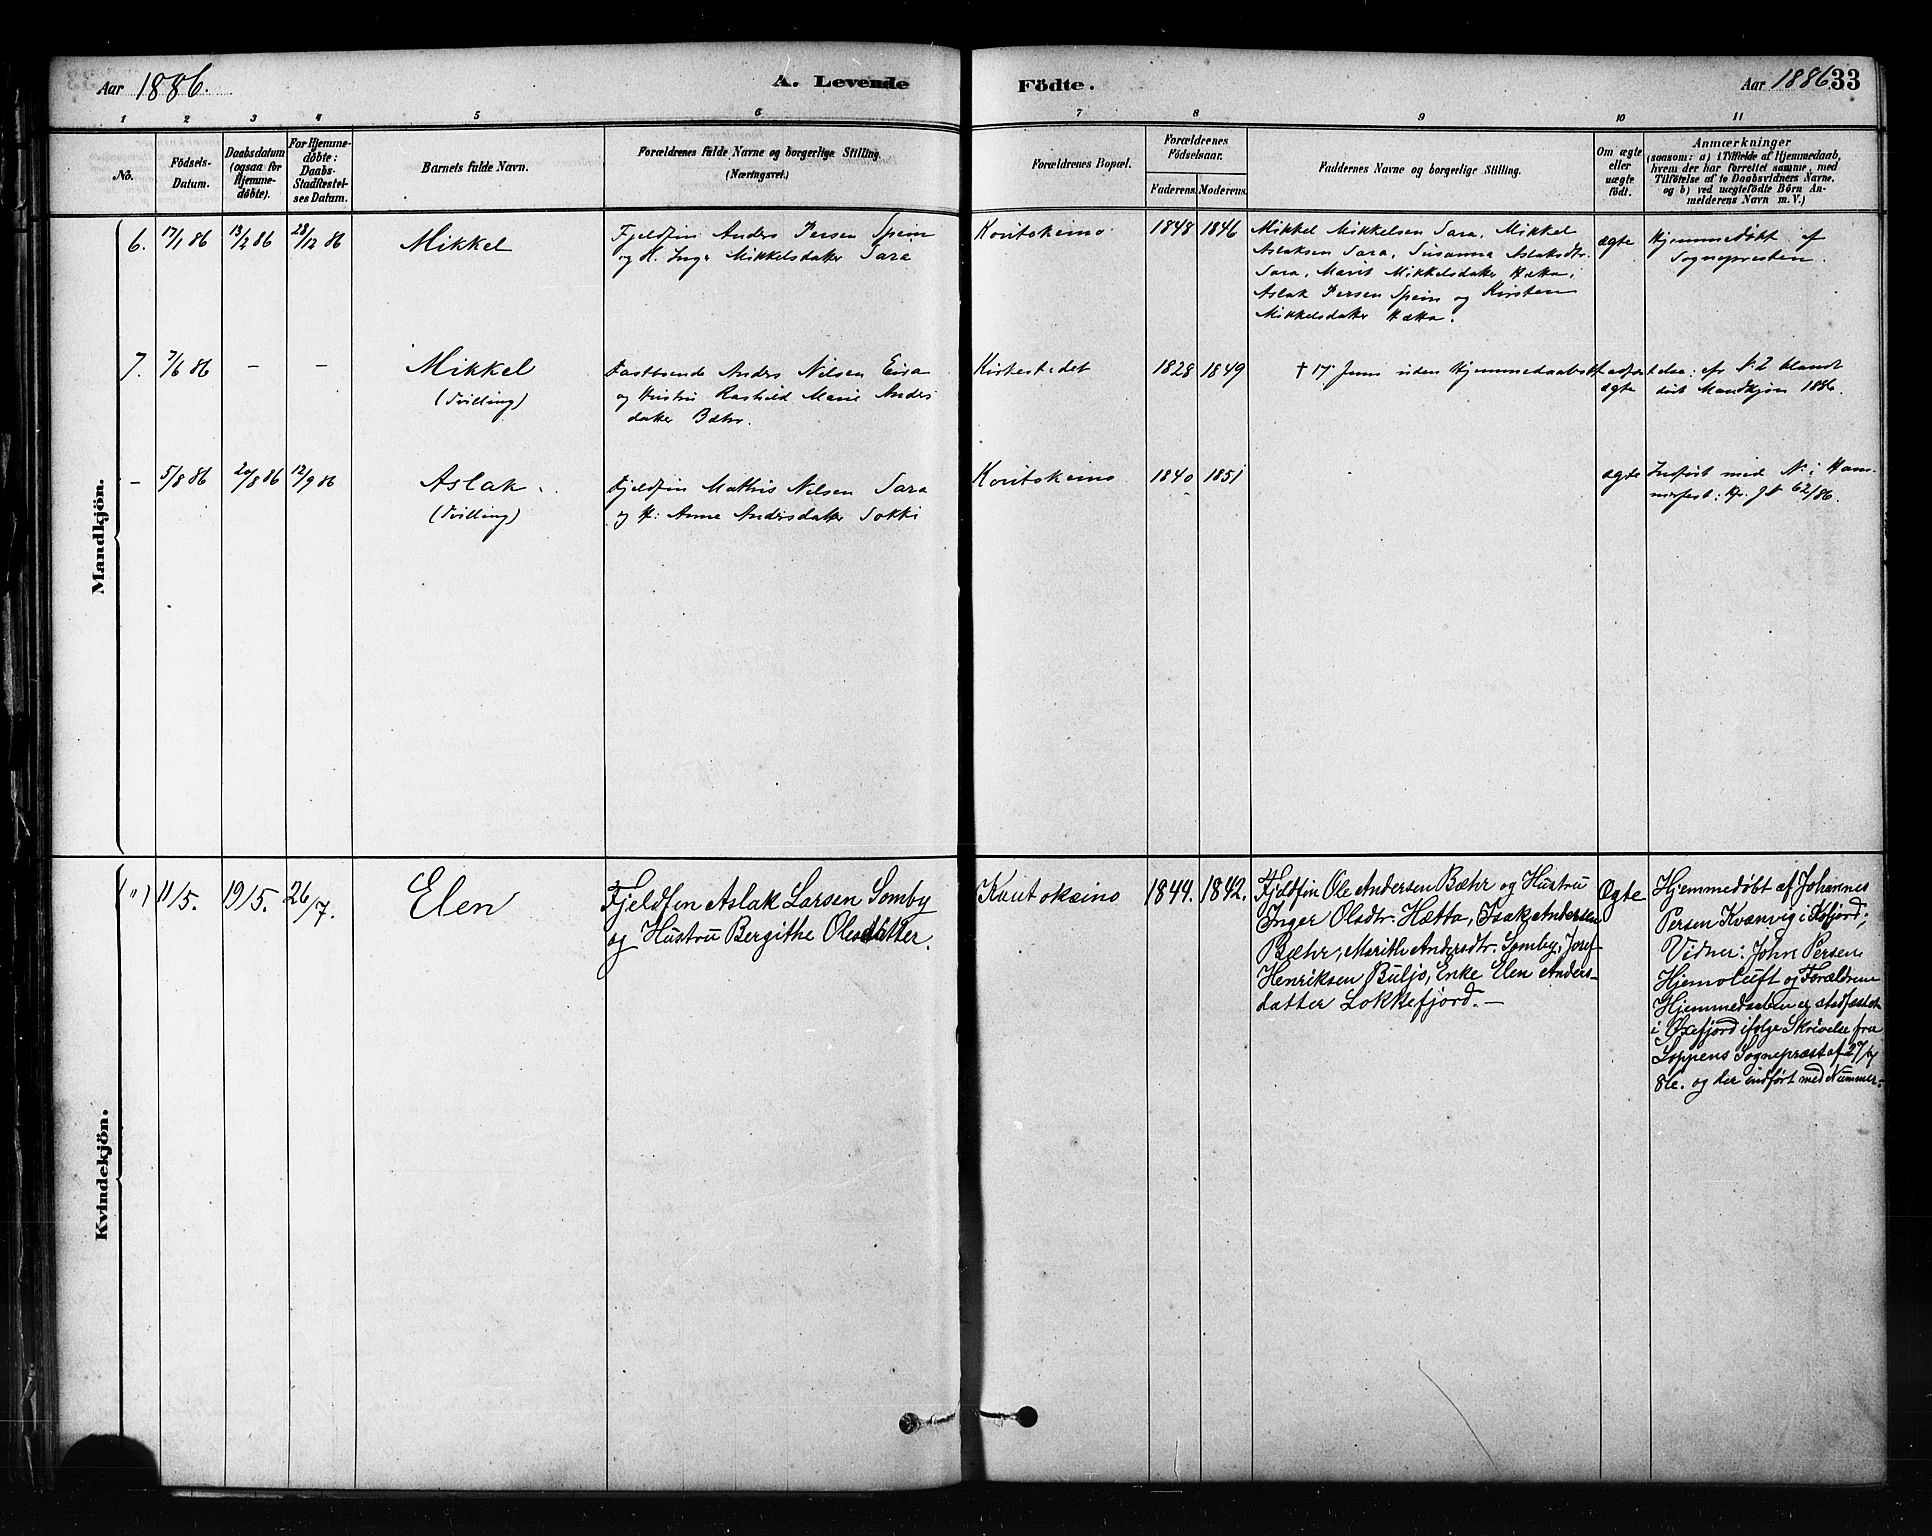 Aar 1886.
A. Levende
Födte.
Aar 1886 33
1 2 3 4 5 6 7 8 9 10 11
No.
Födsels-
Datum.
Daabsdatum
(ogsaa for
Hjemme-
döbte).
For Hjemme-
döbte:
Daabs-
Stadfæstel-
ses Datum.
Barnets fulde Navn.
Forældrenes fulde Navne og borgerlige Stilling.
(Næringsvei.)
Forældrenes Bopæl.
Forældrenes
Födselsaar.
Faderens. Moderens.
Faddernes Navne og borgerlige Stilling.
Om ægte
eller
uægte
födt.
Anmærkninger
(saasom: a) i Tilfælde af Hjemmedaab,
hvem der har forrettet samme, med
Tilföielse af to Daabsvidners Navne,
og b) ved uægtefödte Börn An-
melderens Navn m. V.)
Mandkjön.
6. 17/1 86 13/2 86 28/12 86
Mikkel
Fjeldfin Anders Persen Spein
og H. Inga Mikkelsdatter Sara
Koutokeino
1848 1846
Mikkel Mikkelsen Sara, Mikkel
Aslaksen Sara, Susanna Aslaksdtr.
Sara, Marit Mikkelsdatter Hætta,
Aslak Persen Spein og Kirsten
Mikkelsdatter Hætta.
ægte
Hjemmedøbt af
Sognepresten.
7. 7/6 86 – –
Mikkel
(Tvilling)
Fastboende Anders Nilsen Eira
og Hustru Ragnhild Marie Anders
datter Bæhr.
Kirkestedet
1828 1849
† 17 Juni uden Hjemmedaab
ægte
No 2 blandt
døde Mandkjøn 1886.
– 5/8 86 20/8 86 12/9 86
Aslak
(Tvilling)
Fjeldfin Mathis Nilsen Sara
og H: Anne Andersdatter Sokki
Koutokeino
1840 1851
ægte
Indført med N: i Ham-
merfest: 62/86.
Kvindekjön.
(") 11/5. 19/5. 26/7.
Elen
Fjeldfin Aslak Larsen Somby
og Hustru Bergithe Olesdatter.
Koutokeino
1844. 1842.
Fjeldfin Ole Andersen Bæhr og Hustru
Inger Olsdtr. Hætta, Isak Andersen
Bæhr, Marith Andersdtr. Somby, Josef
Henriksen Buljo, Enke Elen Anders-
datter Lokkefjord. –
Ægte
Hjemmedøbt af Johannes
Persen Kvænvig i Kofjord;
Vidner: John Persen
Hjemoluft og Forældrene
Hjemmedaaben er stadfæstet
i Øxfjord ifølge Skrivelse fra
Loppens Sognepræst af 27/7
86. og der indført med Nummer.